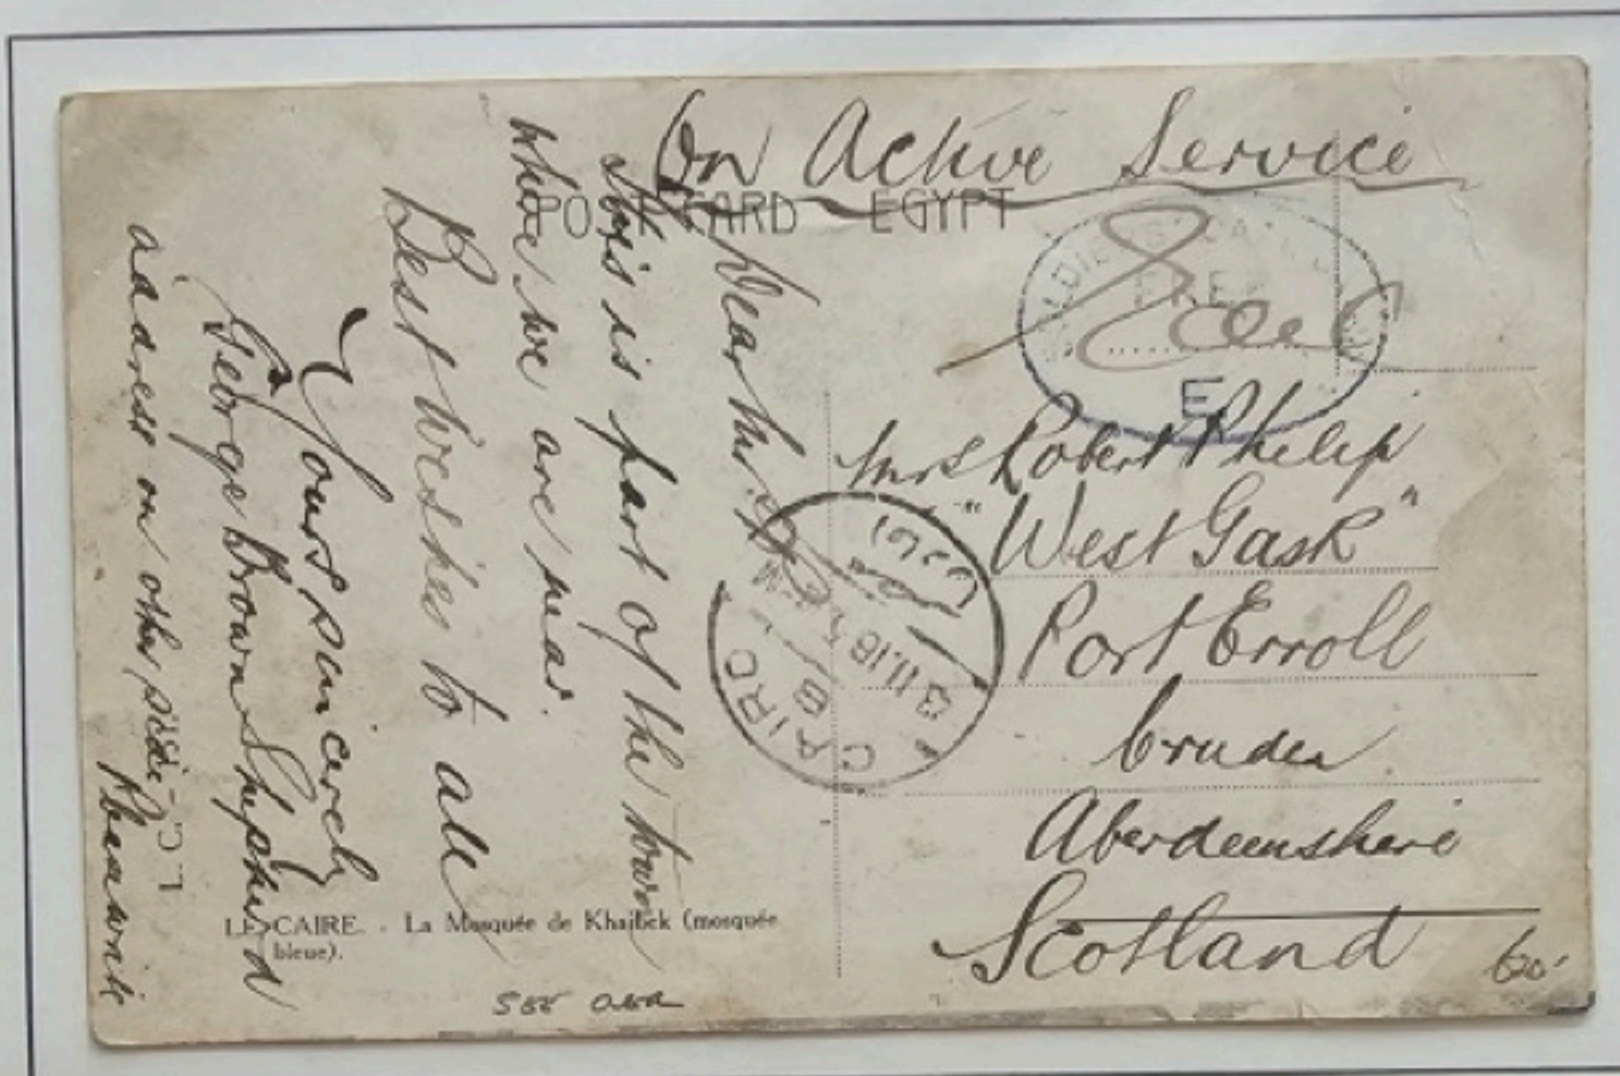 On Active Service
POSTCARD EGYPT
E
Mrs Robert Philip
"West Gask"
Port Erroll
Cruden
Aberdeenshire
Scotland
Dear Mr.
This is part of the town
where we are near.
Best wishes to all
Yours sincerely
George Brown Shepherd
address on other side
CAIRO
LE CAIRE. - La Mosquée de Khaïbek (mosquée
bleue).
SEE